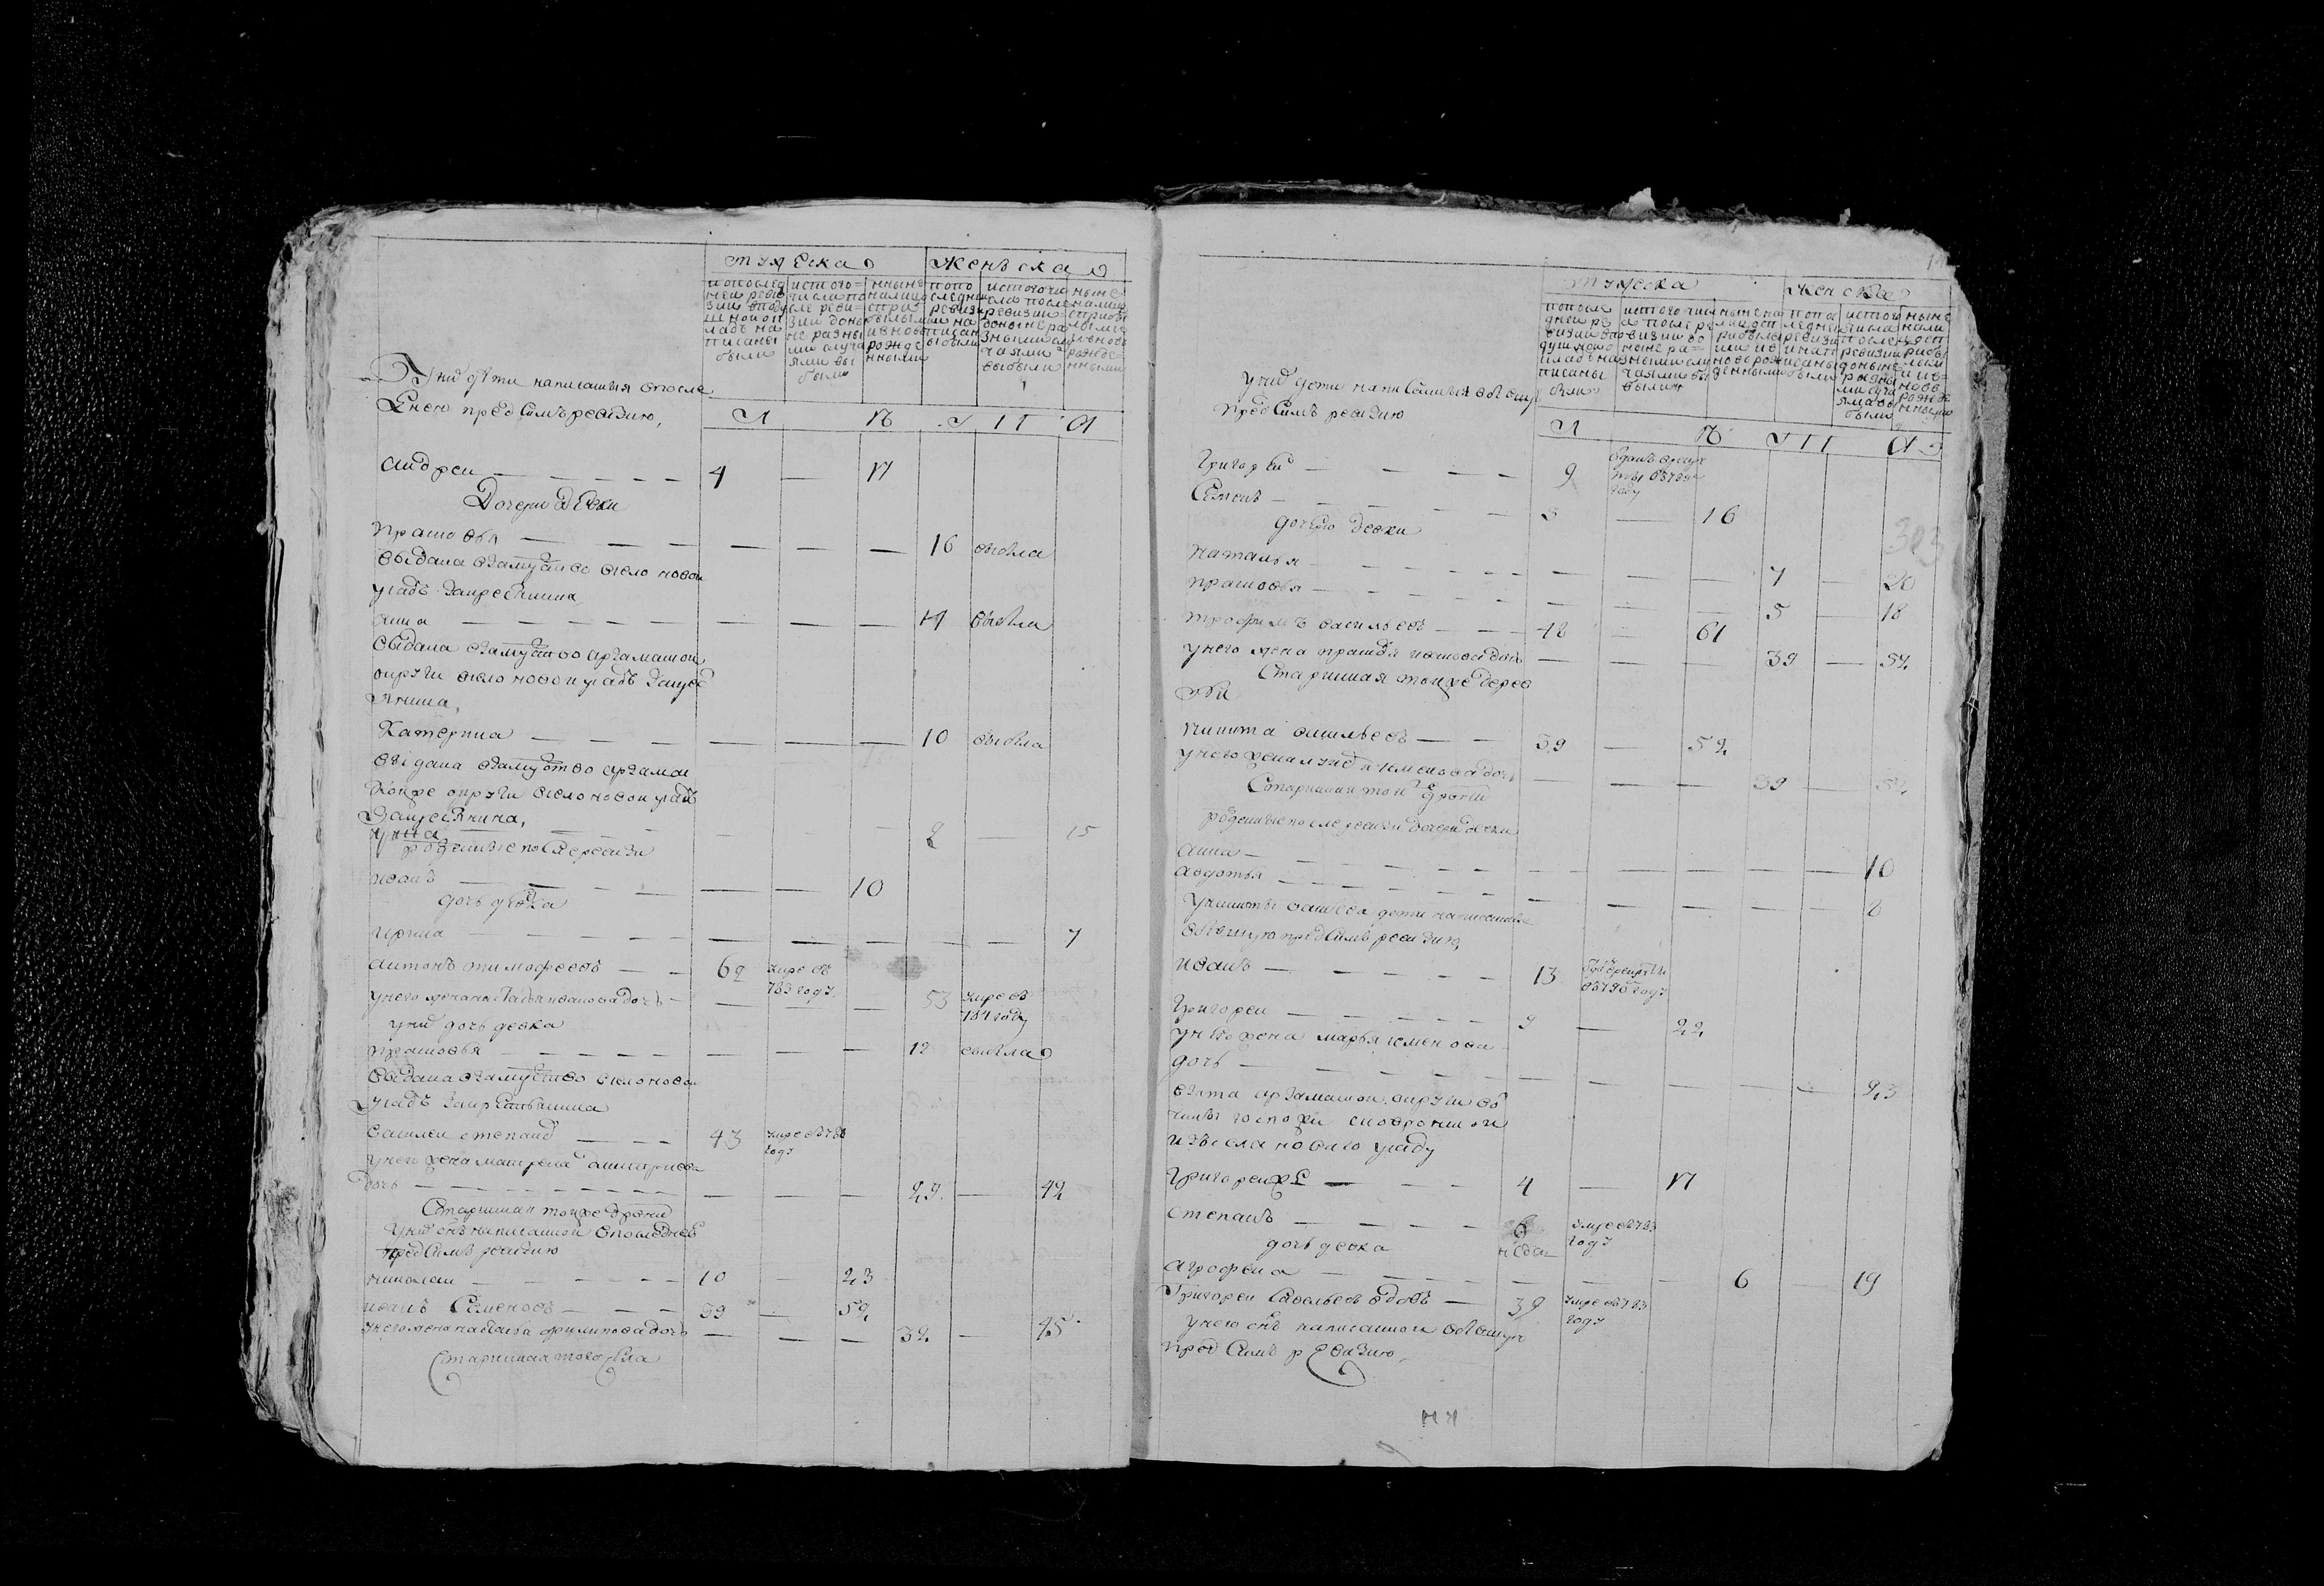 мужеска
женъска
попослед
ней реви
зии вподу
шной ок
ладъ на
писаны
были
истого
числа по
сле реви
зии доны
не разны
ми случа
ями вы
были
ныне
налицо
спри
былыми
ивновь
рожде
нными
попо
следне
ревизи
и на
писан
ы были
истогочи
сла после
ревизии
доныне ра
зными слу
чаями
выбыли
ныне
налицо
сприбы
лыми
ивновь
рожде
нными
Унихъ дети написанныя впосле
днею предъ симъ ревизию,
Л Ѣ Т А
андреи 4 — 17
Дочери девки
прасковья — — — 16 выбыла
выдана взамужство всело новои
усадъ закрестьянина
анна — — — 14 выбыла
выдана взамужство арзамаскои
округи вело новои усадъ закрест
янина,
Катерина — — — 10 выбыла
выдана взамужство арзамас
Коиже округи вело новои усадъ
Закрестьянина,
2 — 15
рожденные после ревизи
иванъ — — 10
дочь девка
ирина — — — — — 7
антонъ тимофеевъ — 62 умре въ
783 году
унего жена настасья иванова дочь — — — 53 умре въ
784 году
унихъ дочь девка
прасковья — — — 12 выбыла
выдана взамужство вело новои
усадъ закрестьянина
василеи степановъ — 43 умре въ 788
году
унего жена матрена дмитриева
дочь — — — 29 — 42
Старинная тоиже деревни
унихъ сынъ написанной впоследнею
предъ симъ ревизию
николаи — 10 — 23
иванъ Семеновъ — 39 — 52
унего жена настасья филипова дочь — — — 32 — 45
Старинная того села
мужеска
женска
попосле
дней ре
визии впо
душной о
кладъ на
писаны
были
истого числ
а после ре
визии до
ныне ра
зными слу
чаями вы
были
ныне на
лицо сп
рибылы
ми ив
новь рож
денными
попос
ледне
ревизи
и нап
исаны
были
истого
числа
после
ревизии
доныне
разны
ми случа
ями вы
были
ныне
нали
цо сп
рибы
лыми
и ив
новь
рожде
нными
унихъ дети написанныя въ оную
предъ симъ ревизию
Л Ѣ Т А
Григореи — 9 отданъ врекру
ты въ 789
году
Семенъ — 3 — 16
дочери девки
наталья — — — 7 — 20
прасковья — — — 5 — 18
трофимъ васильевъ — 48 — 61
унего жена прасковья иванова дочь — — — 39 — 52
Старинная тоиже дерев
ни
никита васильевъ — 39 — 52
унего жена семенова дочь — — — 39 — 52
Старинная тоиже деревни
рожденные после ревизи дочери девки
анна — — — — — 10
авдотья — — — — — 8
уникиты васильева дети написанныя
въ оную предъ симъ ревизию,
иванъ — 13
въ 796 году
Григореи — 9 — 22
унево жена марья семенова
дочь — — — — — 23
взята арзамаскои округи во
чины госпожи
изъ села новаго усаду
Григореиже — 4 — 17
степанъ — 6
недель
умре въ 783
году
дочь девка
агрофена — — — 6 — 19
Григореи Савельевъ вдовъ — 39 умре въ 783
году
унего сынъ написанной въ оную
предъ симъ ревизию,
303